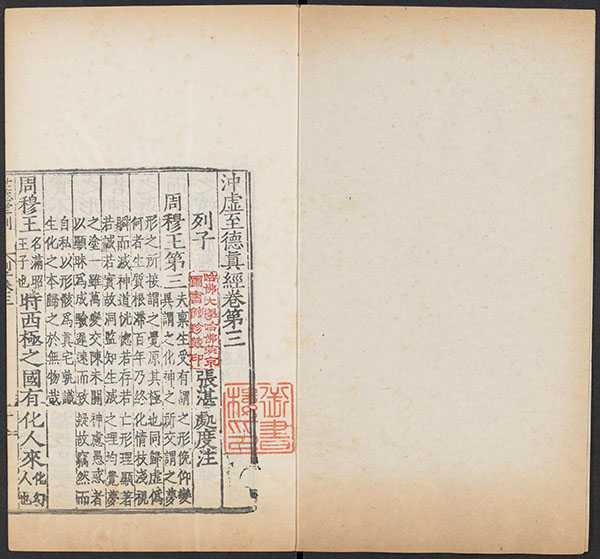 沖虛至德真經卷第三
列子　張湛處度注
哈佛大學哈佛燕京
圖書館珍藏印
周穆王第三
夫稟生受有謂之形俛仰變
異謂之化神之所交謂之夢
形之所接謂之覺原其極也同歸虛偽
何者生質根滯百年乃終化情枝淺視
瞬而滅神道恍惚若存若亡形理顯著
若誠若實故洞監知生滅之理均覺夢
之塗一雖萬變交陳未關神慮愚惑者
以顯昧為成驗遲速而致疑故竊然而
自私以形骸為真宅孰識
生化之本歸之於無物哉
周穆王名滿昭王子也時西極之國有化人來化幻人也